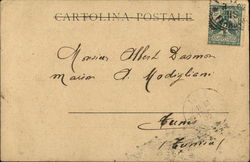 CARTOLINA POSTALE
Monsieur Albert Dasmon
maison A. Modigliani
Tunis
(Tunisia)